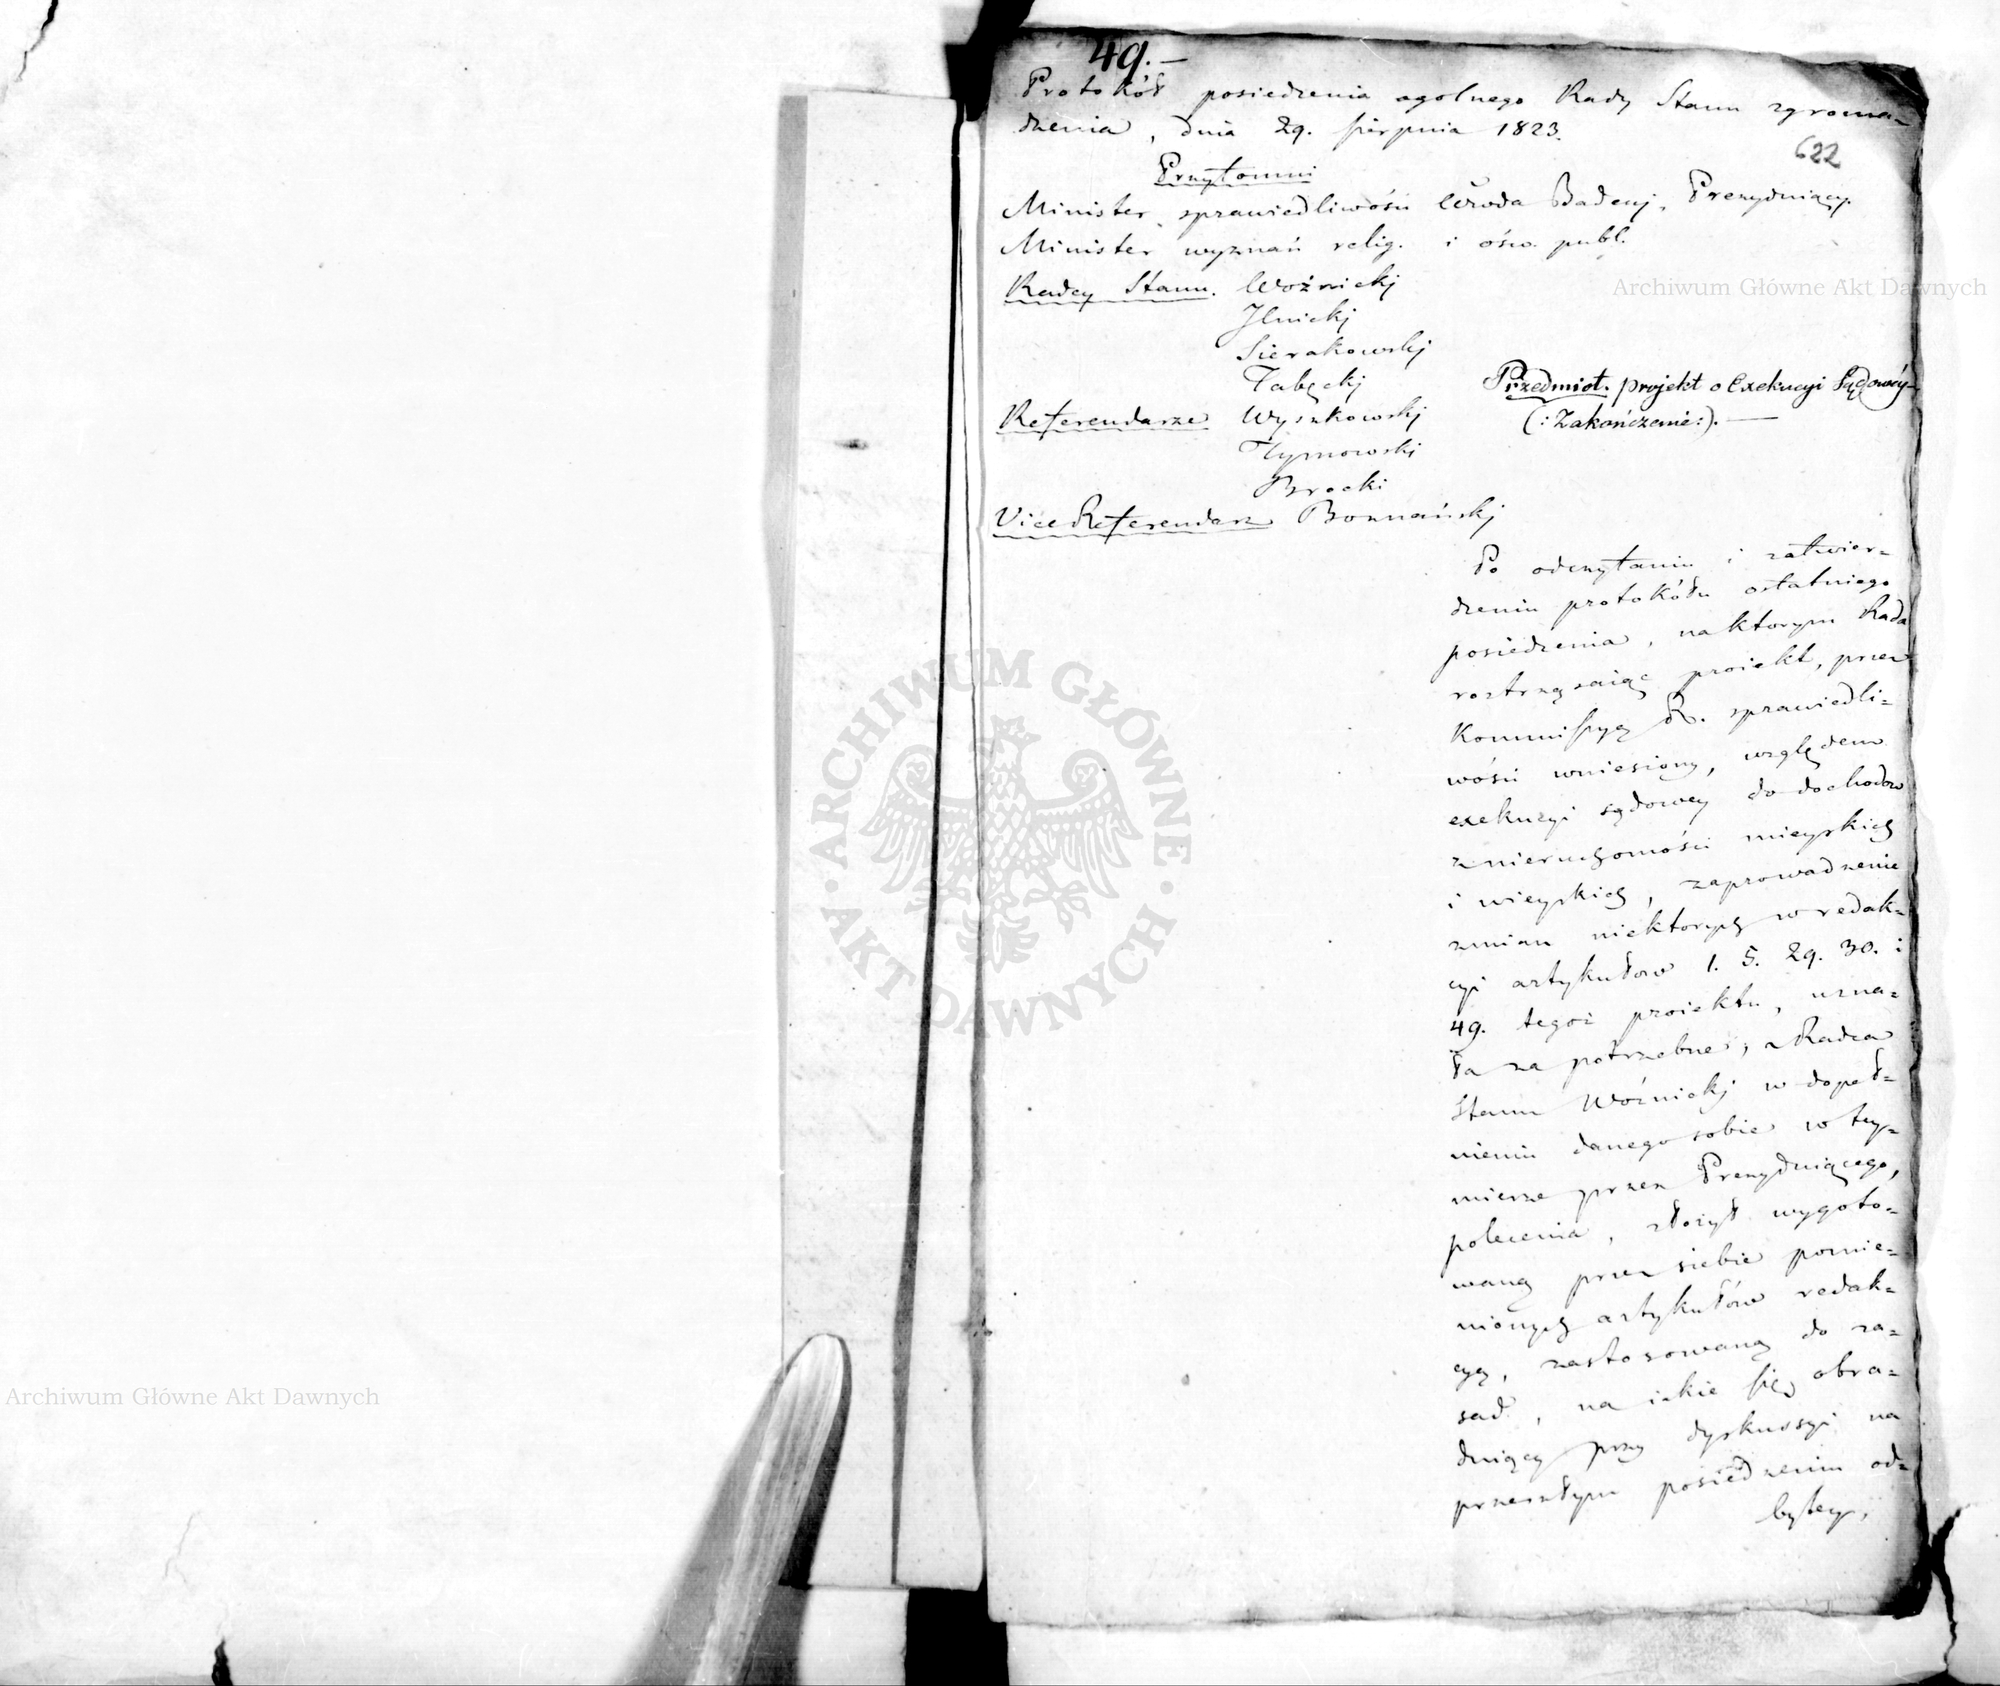 49.—
Protokół posiedzenia ogolnego Rady Stanu zgroma-
dzenia, dnia 29. sierpnia 1823.
622
Przytomni
Minister sprawiedliwości Wwda Badeni, Prezyduiący.
Minister wyznań relig. i ośw. publ.
Radcy Stanu. Woźnicki
Archiwum Główne Akt Dawnych
Ilnicki
Sierakowski
Tabęcki
Przedmiot. projekt o Exekucyi Sądowéy
(: Zakończenie :). —
Referendarze Wyszkowski
Tymowski
Brocki
Vice Referendarz Boznański
Po odczytaniu i zatwier-
dzeniu protokółu ostatniego
posiedzenia, na ktorym Rada
roztrząsaiąc proiekt, przez
Kommissyą R. sprawiedli-
wości wniesiony, względem
exekucyi sądowey do dochodow
z nieruchomości mieyskich
i wieyskich, zaprowadzenie
zmian niektorych w redak-
cyi artykułow 1. 5. 29. 30. i
49. tegoż proiektu, uzna-
ła za potrzebne; Radca
Stanu Woźnicki w dopeł-
nieniu danego sobie w tey
mierze przez Prezyduiącego,
polecenia, złożył wygoto-
waną przez siebie pomie-
nionych artykułów redak-
cyą, zastosowaną do za-
sad, na iakie się obra-
duiący przy dyskussyi na
przeszłym posiedzeniu od-
bytey,
ARCHIWUM GŁÓWNE
AKT DAWNYCH
Archiwum Główne Akt Dawnych